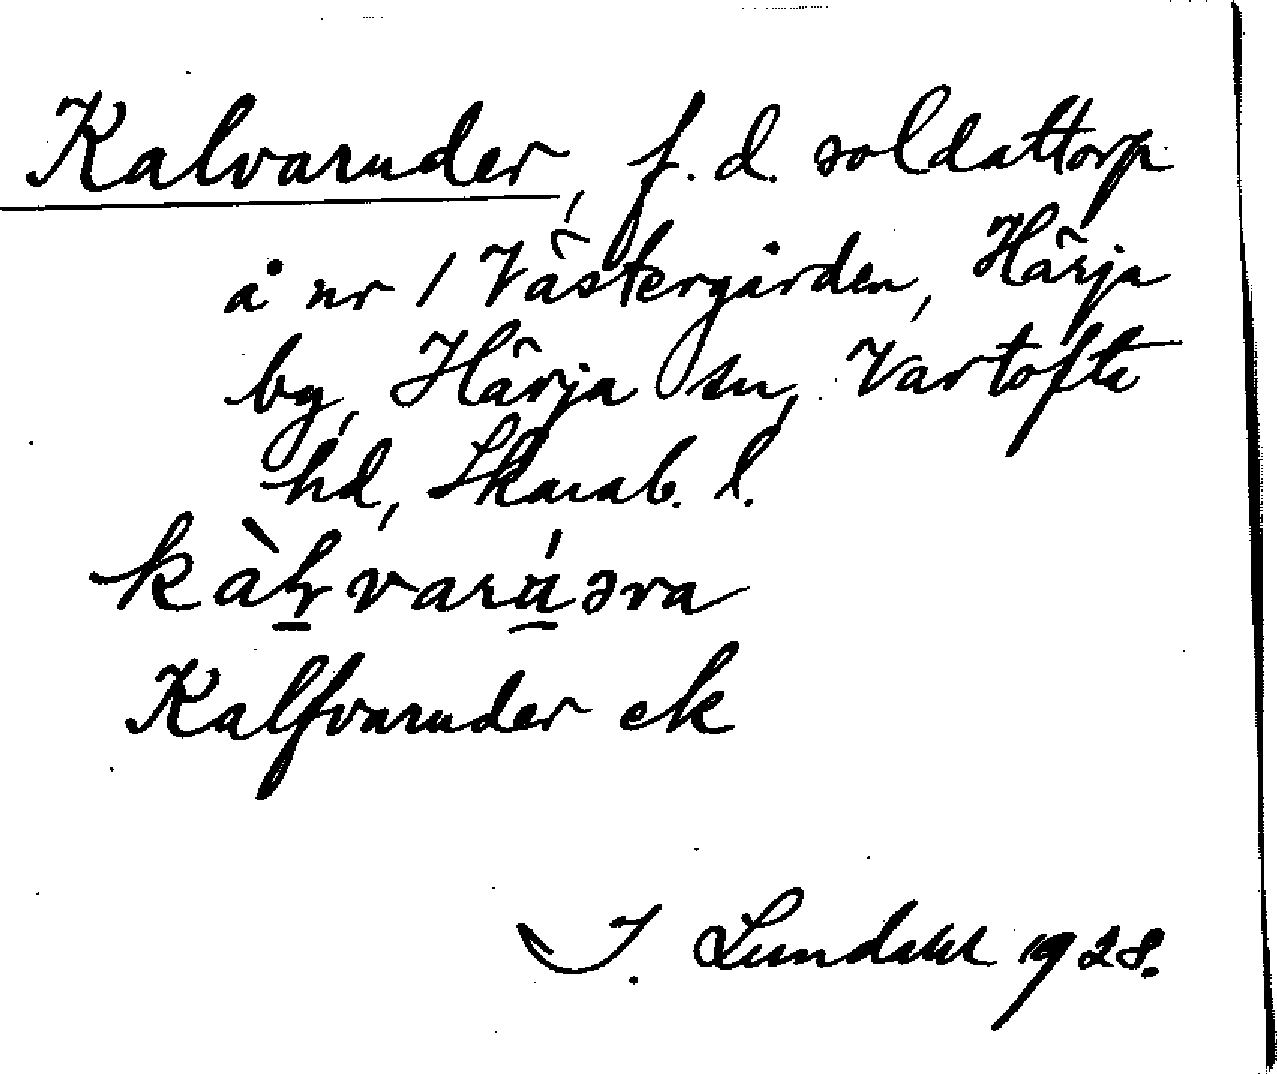 Kalvaruder, f.d. soldattorp
å nr 1 Västergården, Härja
by, Härja sn, Vartofta
hd, Skarab. l.
Kalfvaruder ek
I. Lundahl 1928.